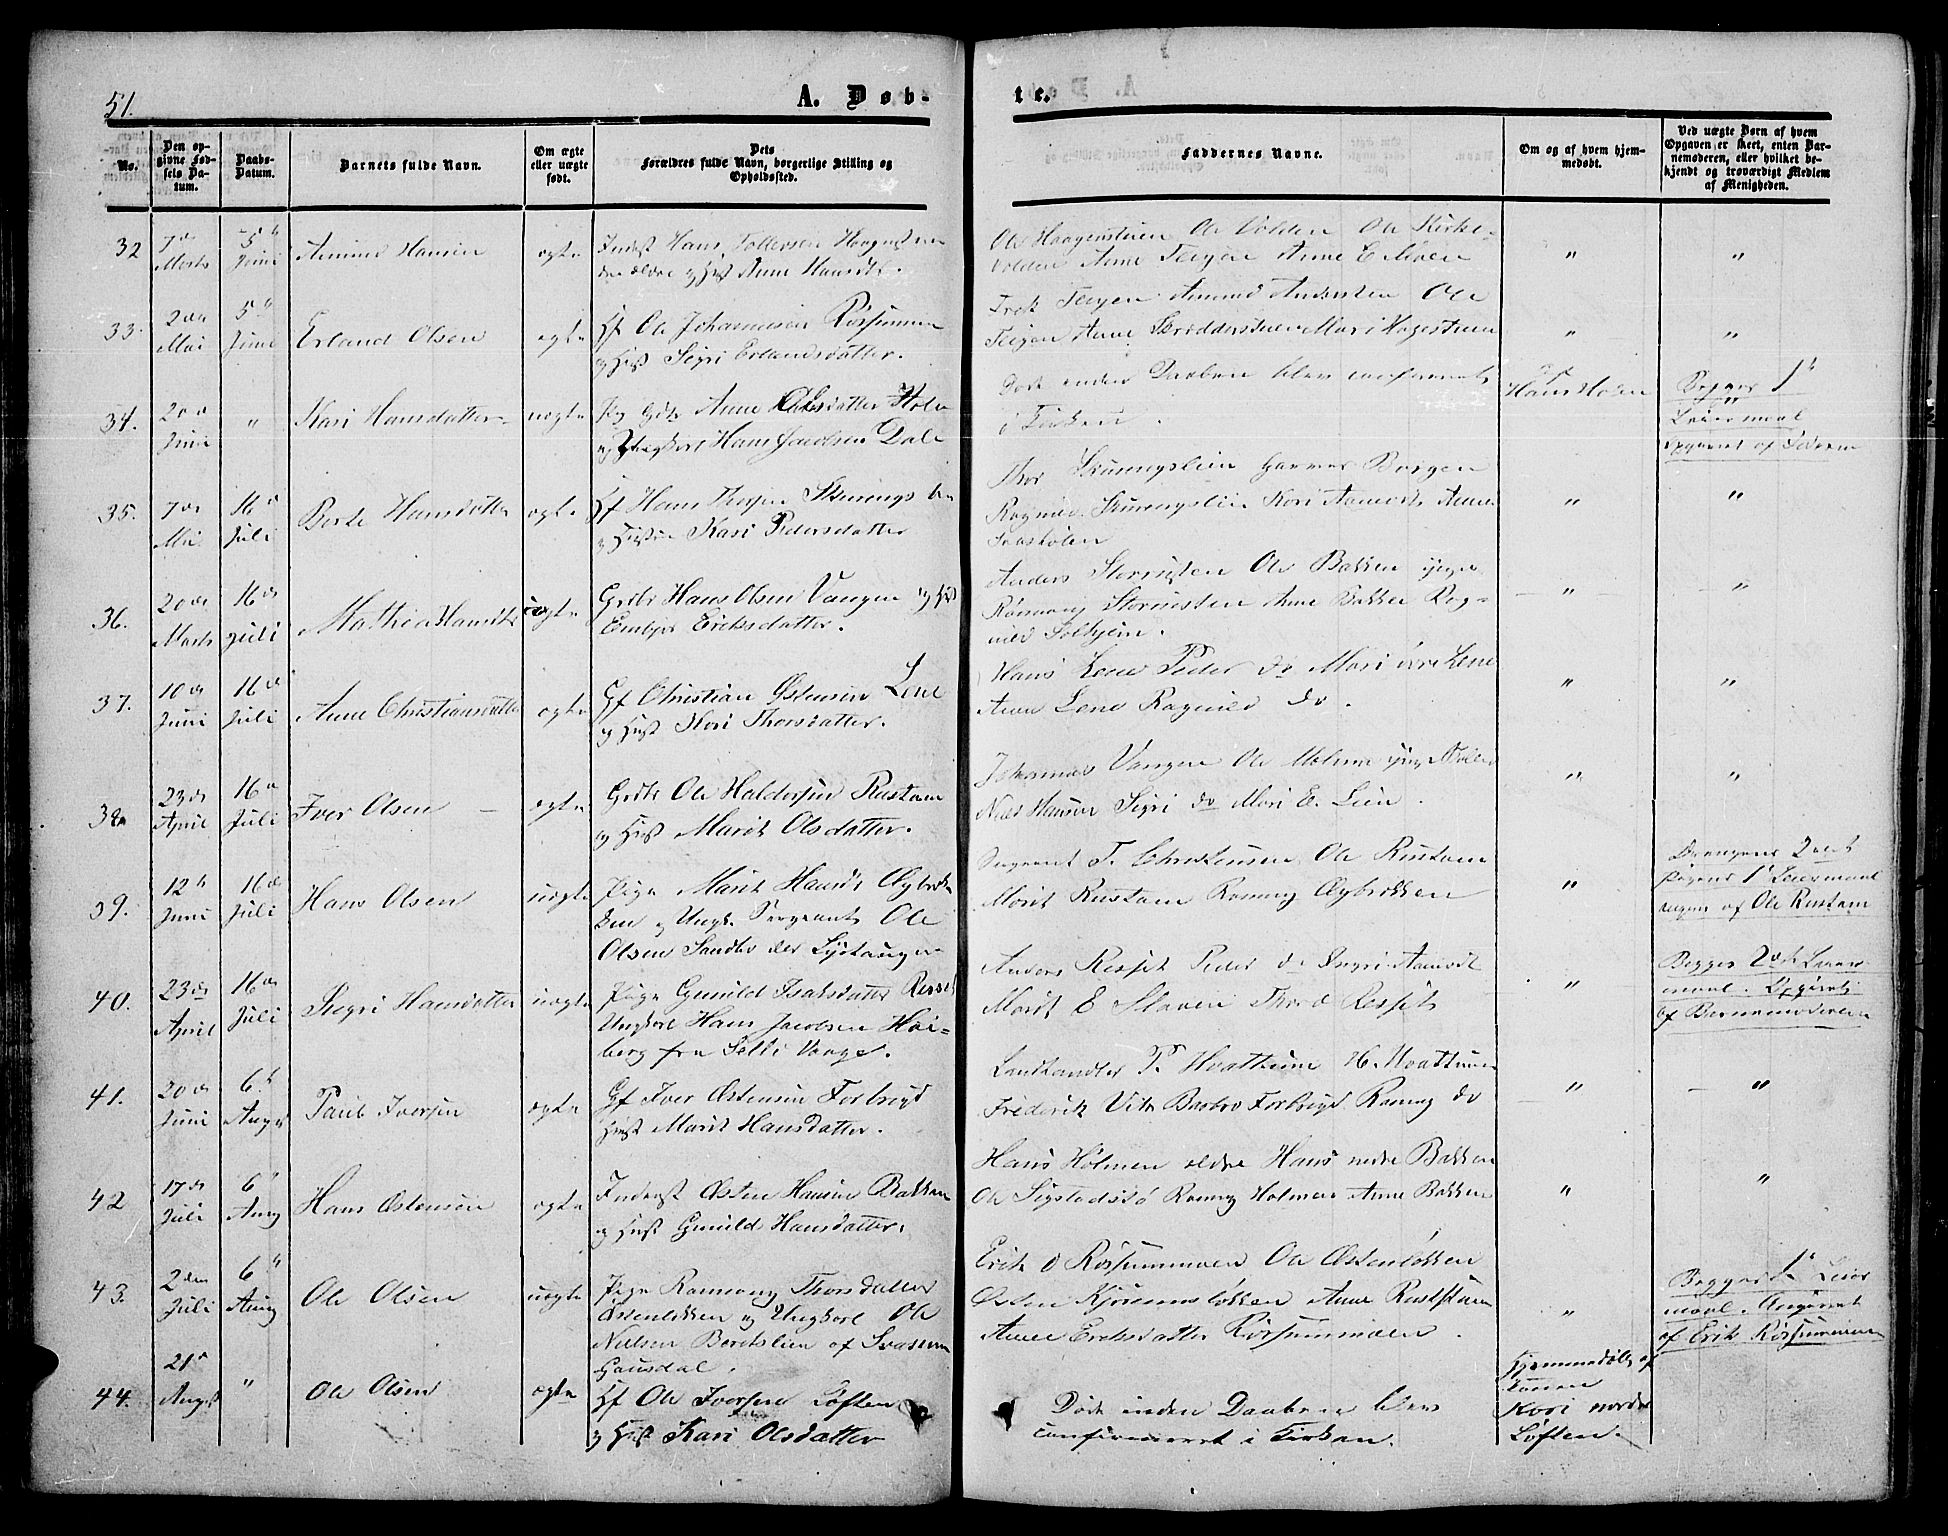 51.
A. Døb-
te.
No.
Den op-
givne Fød-
sels Da-
tum.
Daabs-
Datum.
Barnets fulde Navn.
Om ægte
eller uægte
født.
Dets
Forældres fulde Navn, borgerlige Stilling og
Opholdssted.
Faddernes Navne.
Om og af hvem hjem-
medøbt.
Ved uægte Børn af hvem
Opgaven er skeet, enten Bar-
nemoderen, eller hvilket be-
kjendt og troværdigt Medlem
af Menigheden.
32
7de
Marts
5te
Juni
Hansen
ægte
Inderst Hans Tollefsen
ældre og Hust Anne Hansdtr.
Ole Haagenstuen Ole Volden Ole Kirke-
volden Anne Teigen Anne E. Moen
"
"
33.
2den
Mai
5te
Juni
Erland Olsen
ægte
Gf Ole Johannesen Rørhuusmoen
og Hust Sigri Erlandsdatter.
Teigen Amund Andersten Ole
Teigen Anne Skrædderstuen Mari Hagestuen
"
"
34.
20de
Juni
"
Kari Hansdatter
uægte
Pig Anne Olsdatter Holen
og Ungkarl Hans Jacobsen Dale
Død inden Daaben blev confirmeret
i Kirken.
Hans Holen
Begges 1ste
Leiermaal
Opgivet af Faderen
35.
7de
Mai
16de
Juli
Berte Hansdatter
ægte
Gf Hans Thorsen
og Hustru Kari Pedersdatter
Thor Skurningslien Hannes Borgen
Ragnild Skurningslien Kari Aamodt Anne
"
"
36.
20de
Marts
16de
Juli
Mathia Hansdtr
ægte
Grdbr Hans Olsen Vangen og Hust
Embjør Eriksdatter.
Anders Storrusten Ole Bakken yngre
Rønnaug Storrusten Anne Bakken Rag-
nild Solhjem.
"
"
37.
10de
Juni
16de
Juli
Anne Christiansdatter
ægte
Gf Christian Østensen Lene
og Hust Kari Thorsdatter.
Hans Lene Peder do Mari øvre Lene
Anne Lene Ragnild do.
"
"
38
23de
April
16de
Juli
Iver Olsen
ægte
Grdbr Ole Haldorsen Rustam
og Hust Marit Olsdatter.
Johannes Vangen Ole Molmen yngre
Niels Hansen Sigri do Mari E. Lien.
"
"
39.
12te
Juni
16de
Juli
Hans Olsen
uægte
Pige Marit Hansdtr Øybrek-
ken og Ungk. Sergeant Ole
Olsen Sandbo
Sergeant T. Christensen Ole Rustam
Marit Rustam Rønnaug Øybrekken
"
Drengens 2det
Pigens 1ste Leiermaal
af Ole Rustam
40.
23de
April
16de
Juli
Sigri Hansdatter
uægte
Pige Gunild Isaksdatter Risset
Ungkarl Hans Jacobsen Høi-
berg fra Selli Vaage.
Anders Risset Peder do Ingri Aamodt
Marit E Slaaen Thord Risset
"
Begges 2det Leier-
maal. Opgivet
af Barnemoderen
41.
20de
Juni
6te
August
Paul Iversen
ægte
Gf Iver Østensen Forbrigd
Hust Marit Hansdatter.
Landhandler P. Hvattum H. Hvattum
Frederik Barbro Forbrigd Rønnaug do
"
"
42
17de
Juli
6te
Aug
Hans Østensen
ægte
Inderst Østen Hansen Bakken
og Hust Gunild Hansdatter.
Hans Holmen ældre Hans nedre Bakken
Ole Sigstadsø Rønnaug Holmen Anne Bakken
"
"
43.
2den
Juli
6te
Aug
Ole Olsen
uægte
Pige Rønnaug Thorsdatter
Østenløkken og Ungkarl Ole
Nielsen Berekslien af Svatsum
Gausdal.
Erik O Rørhuusmoen Ole Østenløkken
Østen Kjørumsløkken Anne Rustam
Anne Eriksdatter Rørhuusmoen.
"
Begges 1ste Leier
maal. Angivet
af Erik Rørhuusmoen
44.
21de
August
"
Ole Olsen
ægte
Gf Ole Iversen Løften
og Hust Kari Olsdatter
Døde inden Daaben blev
confirmeret i Kirken.
Hjemmedøbt af
Konen
Kari nordre
Løften.